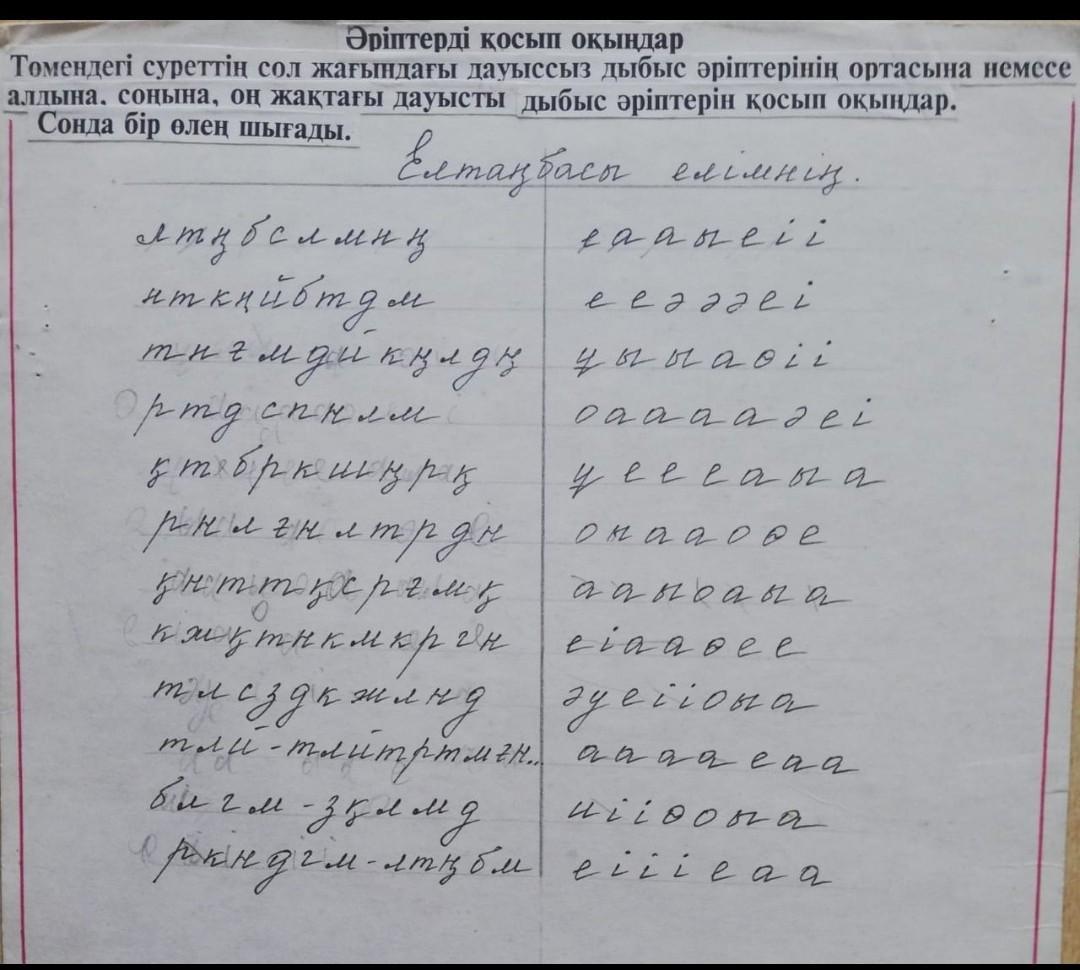 Әріптерді қосып оқыңдар
Төмендегі суреттің сол жағындағы дауыссыз дыбыс әріптерінің ортасына немесе
алдына. соңына, оң жақтағы дауысты дыбыс әріптерін қосып оқыңдар.
Сонда бір өлең шығады.
Елтаңбасы елімнің.
лтңбслмнң еааыеіі
нткңйбтдм ееәәәеі
тнғмдйкңлдң ұыыаөіі
ртдспнлм оааааәеі
қтбркшңрқ ұеееаыа
рнлғнлтрдн оыааоөе
қнттқсрғмқ ааыоаыа
кжқтнкмкргн еіааөее
тлсздкжлнд әуеііоыа
тлй-тлйтртмғн.. ааааеаа
блгм-зқлмд иііөоыа
ркндгім-лтңбм еіііеаа